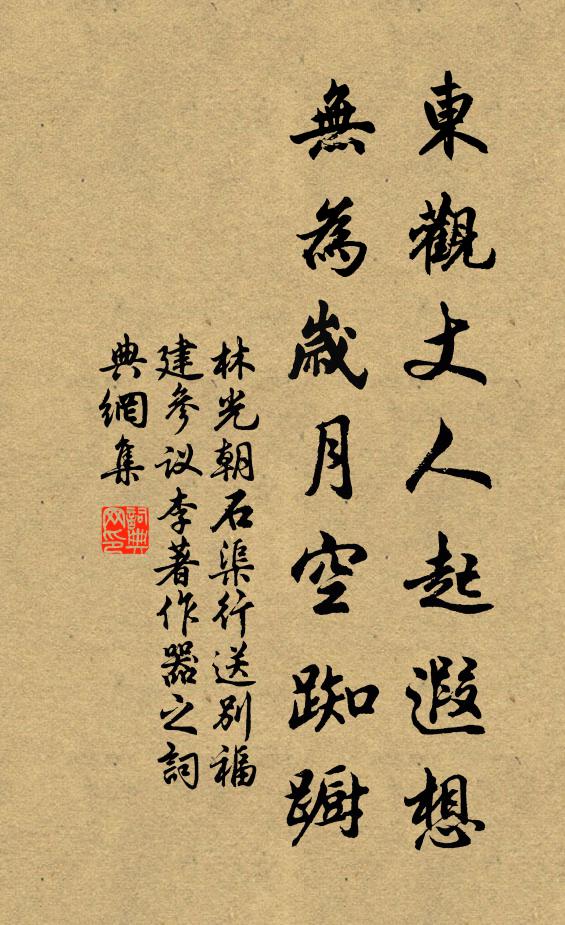 東觀丈人起遐想
無為歲月空踟躕
林光朝石渠行送别福
建參议李著作器之詞
典網集
詞典网印